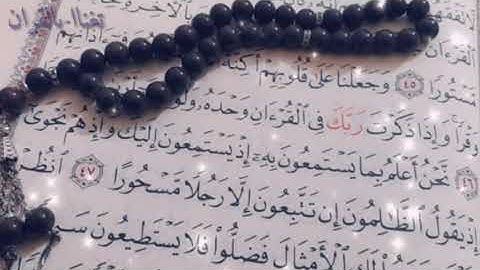 بِالْأَخِرَةِ
الْقُرْءَانَ
مَّسْتُورًا ٤٥ وَجَعَلْنَا عَلَىٰ قُلُوبِهِمْ أَكِنَّةً
وَقْرًا وَإِذَا ذَكَرْتَ رَبَّكَ فِي الْقُرْءَانِ وَحْدَهُ وَلَّوْا
٤٦ نَّحْنُ أَعْلَمُ بِمَا يَسْتَمِعُونَ بِهِ إِذْ يَسْتَمِعُونَ إِلَيْكَ وَإِذْ هُمْ نَجْوَىٰ
إِذْ يَقُولُ الظَّٰلِمُونَ إِن تَتَّبِعُونَ إِلَّا رَجُلًا مَّسْحُورًا ٤٧ انظُ
لَكَ الْأَمْثَالَ فَضَلُّوا فَلَا يَسْتَطِيعُونَ سَ